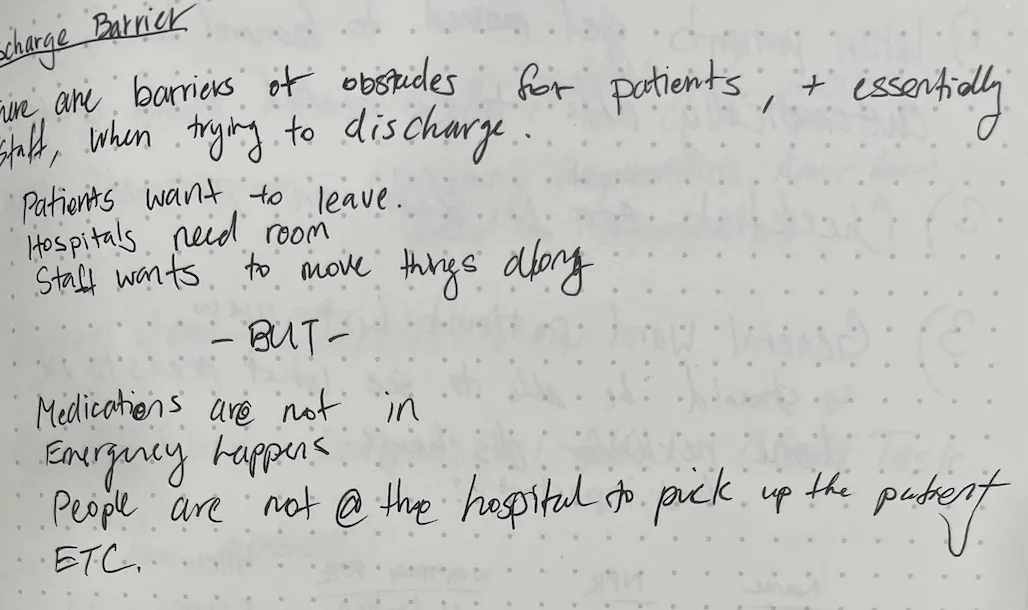 scharge Barrier
are barriers of obstacles for patients, + essentially
staff, when trying to discharge.
Patients want to leave.
Hospitals need room
Staff wants to move things along
- BUT -
Medications are not in
Emergency happens
People are not @ the hospital to pick up the patient
ETC.